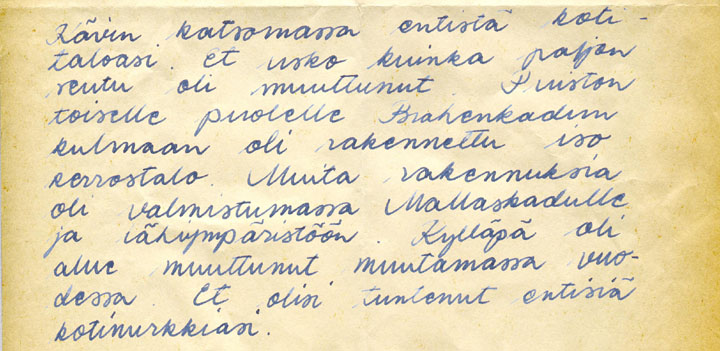 Kävin katsomassa entistä koti-
taloasi. Et usko kuinka paljon
seutu oli muuttunut. Puiston
toiselle puolelle Brahenkadun
kulmaan oli rakennettu iso
kerrostalo. Muita rakennuksia
oli valmistumassa Mallaskadulle
ja lähiympäristöön. Kylläpä oli
alue muuttunut muutamassa vuo-
dessa. Et olisi tuntenut entisiä
kotinurkkiasi.